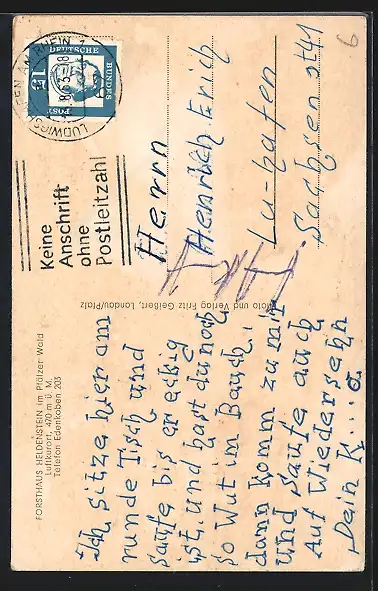 FORSTHAUS HELDENSTEIN im Pfälzer Wald
Luftkurort, 470 m ü. M.
Telefon Edenkoben 203
Ich sitze hier am
runde Tisch und
saufe bis er eckig
ist. und hast du noch
so Wut im Bauch,
dann komm zu mir
und saufe auch
Auf Wiedersehn
Dein K...o.
Foto und Verlag Fritz Geißert, Landau/Pfalz
DEUTSCHE
BUNDES
POST
15
LUDWIGSHAFEN AM RHEIN 1
Keine
Anschrift
ohne
Postleitzahl
Herrn
Henrich Erich
Lu-hafen
Sachsenst 41
6